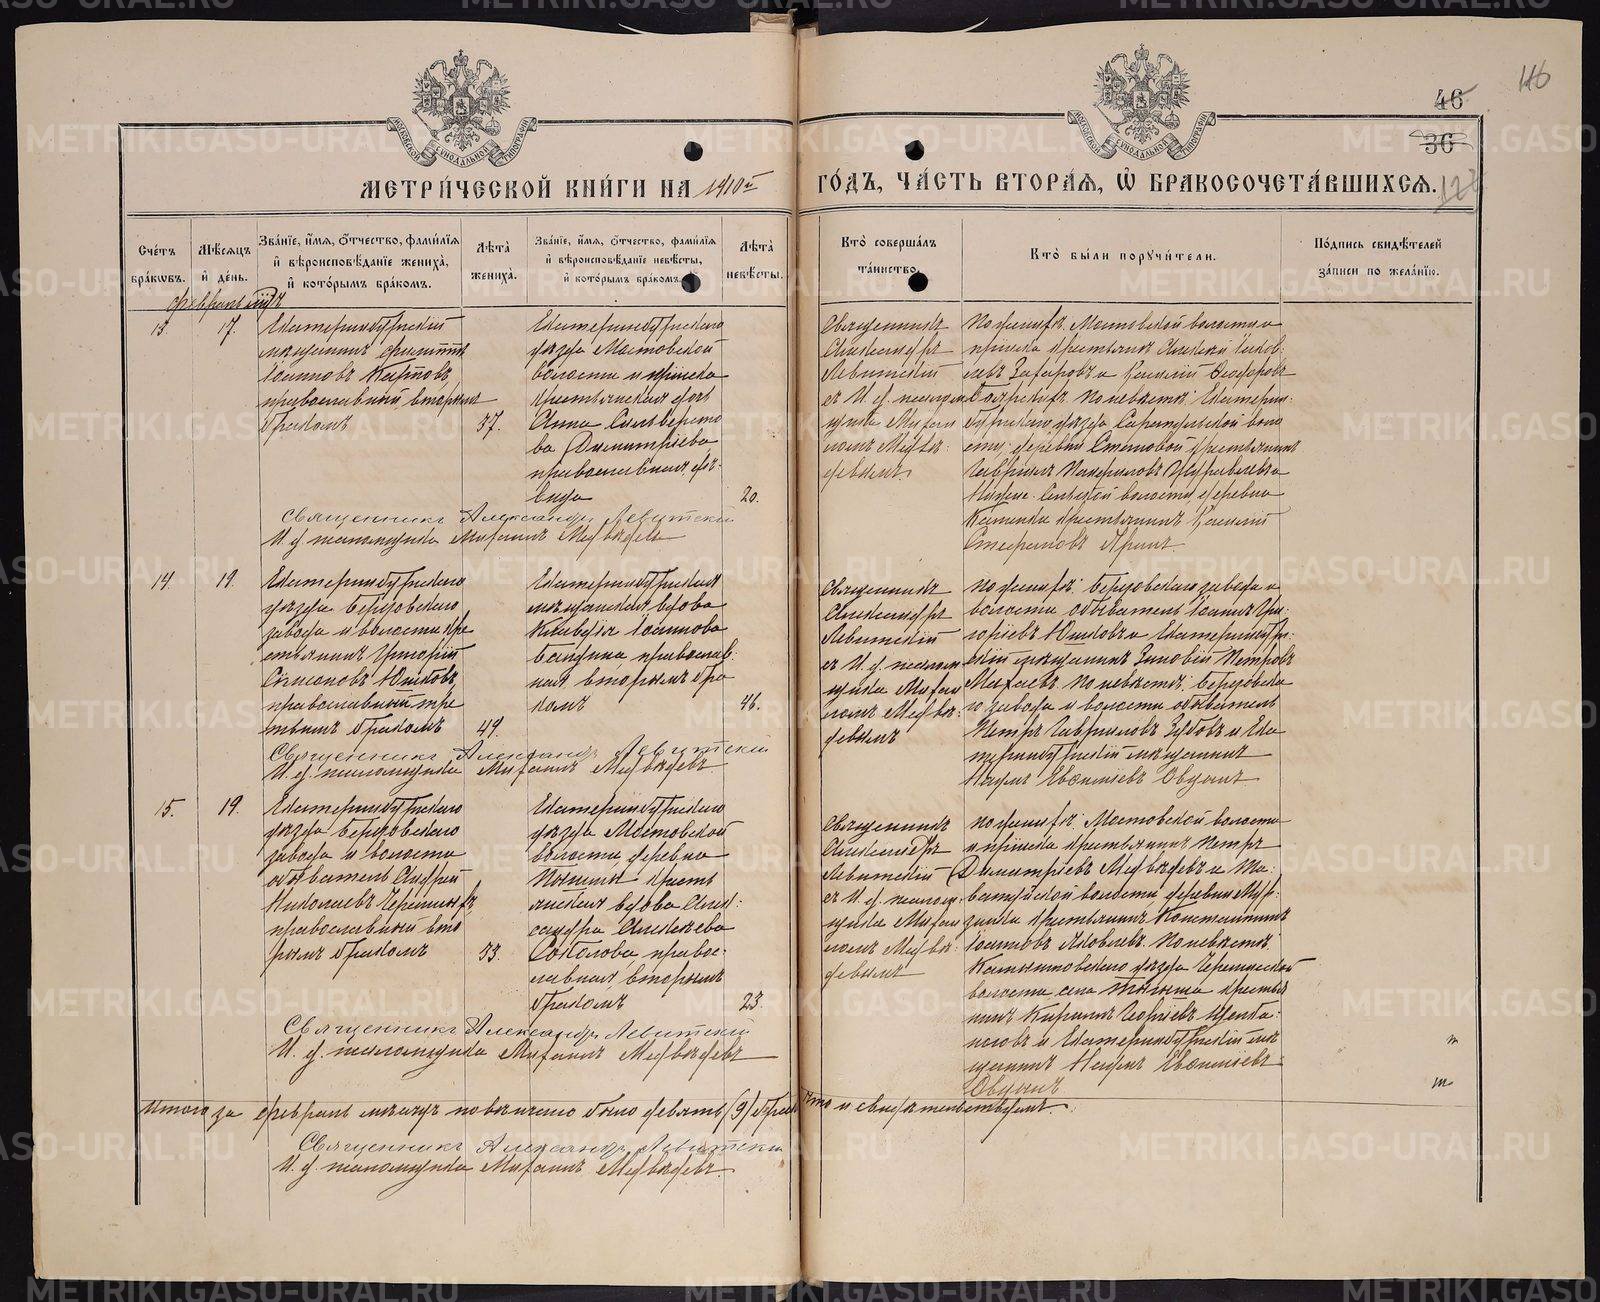 46
116
36
122
МЕТРИ́ЧЕСКОЙ КНИ́ГИ НА 1910й ГО́ДЪ, ЧА́СТЬ ВТОРА́Я, Ѡ БРАКОСОЧЕТА́ВШИХСЯ.
Сче́тъ бра́кѡвъ.
Мѣ́сяцъ и́ де́нь.
Зва́нїе, и́мя, ѻ́тчество, фами́лїя и́ вѣроисповѣ́данїе жениха̀, и́ кото́рымъ бра́комъ.
Лѣта̀ жениха̀.
Зва́нїе, и́мя, ѻ́тчество, фами́лїя и́ вѣроисповѣ́данїе невѣ́сты, и́ кото́рымъ бра́комъ.
Лѣта̀ невѣ́сты.
Кто̀ соверша́лъ та́инство.
Кто̀ бы́ли поручи́тели.
По́дпись свидѣ́телей за́писи по жела́нїю.
Февраль
13.
17.
Екатеринбургскій
мѣщанинъ Филиппъ
Іоанновъ
православный, вторымъ
бракомъ
37.
Екатеринбургскаго
уѣзда Мостовской
волости и прійска
крестьянская дочь
Анна Сильверсто
ва Димитріева
православная дѣ-
вица
20.
Священникъ
Александръ
Левитскій
съ И. д. псалом
щика Михаи
ломъ Медвѣ-
девымъ.
По женихѣ: Мостовской волости и
прійска крестьянинъ Алексѣй
левъ Захаровъ и Василій Ѳеодоровъ
По невѣстѣ: Екатерин-
бургскаго уѣзда
сти, деревни Становой крестьянинъ
Гавріилъ Панфиловъ Журавлевъ и
волости деревни
Каменки крестьянинъ Василій
Стефановъ
Священникъ Александръ Левитскій
И. д. псаломщика Михаилъ Медвѣдевъ
14.
19.
Екатеринбургскаго
уѣзда Березовскаго
завода и волости кре
стьянинъ Григорій
Симеоновъ Юшковъ,
православный тре
тьимъ бракомъ
49.
Екатеринбургская
мѣщанская вдова
Клавдія Іоаннова
православ-
ная вторымъ бра
комъ
46.
Священникъ
Александръ
Левитскій
съ И. д. псалом
щика Михаи
ломъ Медвѣ-
девымъ
По женихѣ: Березовскаго завода и
волости обыватель Іоаннъ Гри-
горіевъ Юшковъ и Екатеринбург-
скій мѣщанинъ Зиновій Петровъ
По невѣстѣ: Березовска
го завода и волости обыватель
Петръ Гавриловъ Зубовъ и Ека
теринбургскій мѣщанинъ
Наумъ Евѳиміевъ
Священникъ Александръ Левитскій
И. д. псаломщика Михаилъ Медвѣдевъ.
15.
19.
Екатеринбургскаго
уѣзда Березовскаго
завода и волости
обыватель Андрей
Николаевъ
православный вто
рымъ бракомъ
33.
Екатеринбургскаго
уѣзда Мостовской
волости деревни
кресть
янская вдова Алек-
сандра Алексѣева
Соколова правос-
лавная вторымъ
бракомъ
23.
Священникъ
Александръ
Левитскій
съ И. д. псалом-
щика Михаи
ломъ Медвѣ-
девымъ
По женихѣ: Мостовской волости
и прійска крестьянинъ Петръ
Димитріевъ Медвѣдевъ и
волости деревни
крестьянинъ Константинъ
Іоанновъ Яковлевъ. По невѣстѣ:
Камышловскаго уѣзда
волости села крестья
нинъ Кириллъ
новъ и Екатеринбургскій мѣ
щанинъ Наумъ Евѳиміевъ
Священникъ Александръ Левитскій
И. д. псаломщика Михаилъ Медвѣдевъ
Итого за февраль мѣсяцъ повѣнчано было девять (9) браковъ что и свидѣтельствуемъ.
Священникъ Александръ Левитскій
И. д. псаломщика Михаилъ Медвѣдевъ.
METRIKI.GASO-URAL.RU